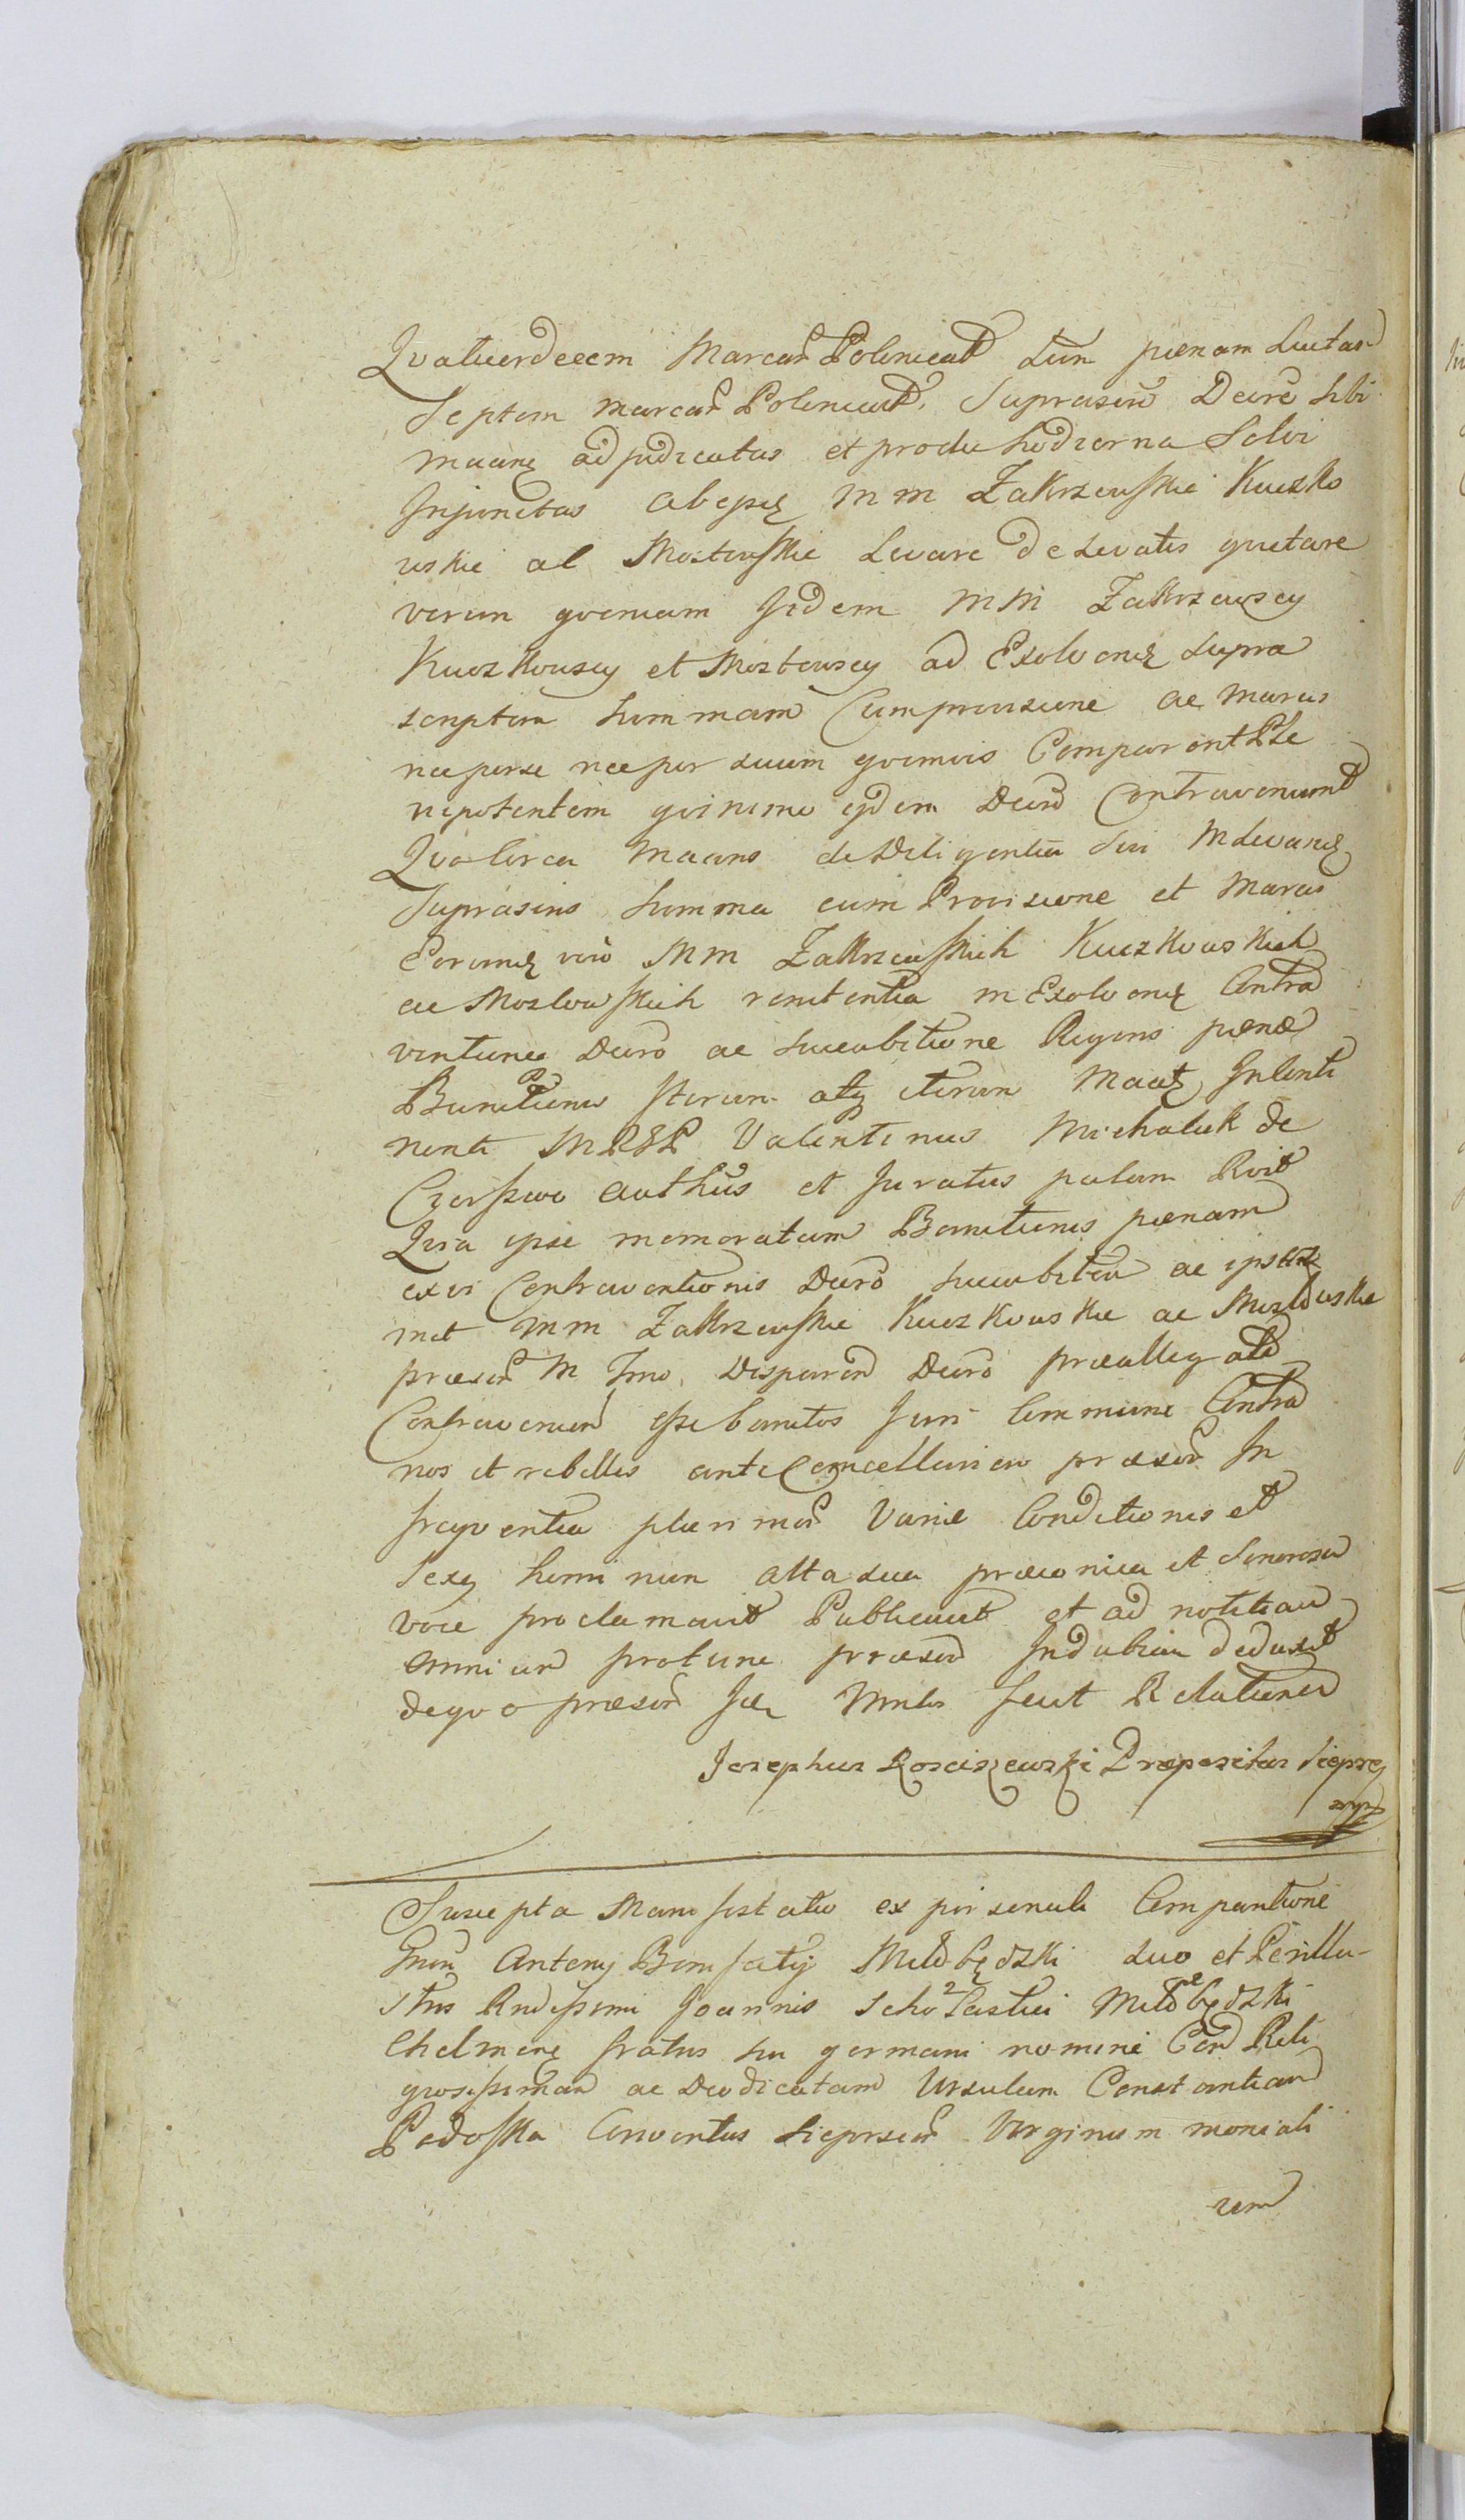 Qvatuordecem Marcar Polonicat tum pœnam Luctar
Septem marcar Polonicat, Suprascr Decre sibi
maans adjudicatas et pro die hodierna Solvi
Injunctas ab ipsis MM Zakrzewskie Kuczko
wskie al Mostowskie Levare de Levatis quietare
verum qvoniam Iidem MM Zakrzewscy
Kuczkowscy et Mostowscy ad Exolvend supra
scriptam Summam Cum provisione ac Marcis
nec per se nec per suum qvemvis Comparent Ple
nipotentem qvinimo ejdem Decro Contraveniunt
Qvo circa Maans de Diligentia sui in Levand
Suprascrip Summa cum Provisione et Marcis
Eorund vero MM Zakrzewskich Kuczkowskich
ac Mostowskich renitentia in Exolvend Contra
ventione Decro ac succubitione Rigoris pœnæ
Bannitionis Iterum atq iterum Maans Insenti
menti MRGP Valentinus Michalek de
Czerszewo authus et Juratus palam Rvit
Qvia ipse memoratam Bannitionis pœnam
ex vi Contraventionis Decro succubitam ac ipsos
met MM Zakrzewskie Kuczkowskie ac Mostowskie
præscr M Imo, Disparen Decro præallegato
Contravenien esse bannitos Juri Communi Contra
rios et rebelles ante Cancellariam præsen In
freqventia plurimor Variæ Conditionis et
Sexq hominum alta sua præconica et Sonorosa
voce proclamavit Publicavit et ad notitiam
omnium protunc præsen Indubiam deduxit
de qvo præsen Jdq Mnlis fecit Relationem
Josephus Rosciszewski Præpositus Sieprcz
mpp
Suscepta Manifestatio ex personali Comparitione
Gnsi Antony Bonifatij Miłobędzki suo et Perillu-
stris Rndissimi Joannis Scholastici Miłobędzki
Chelmens fratris sui germani nomine Con Reli
giosissimam ac Deo dicatam Ursulam Constantiam
Podoska Conventus Sieprscen Virginum moniali
um